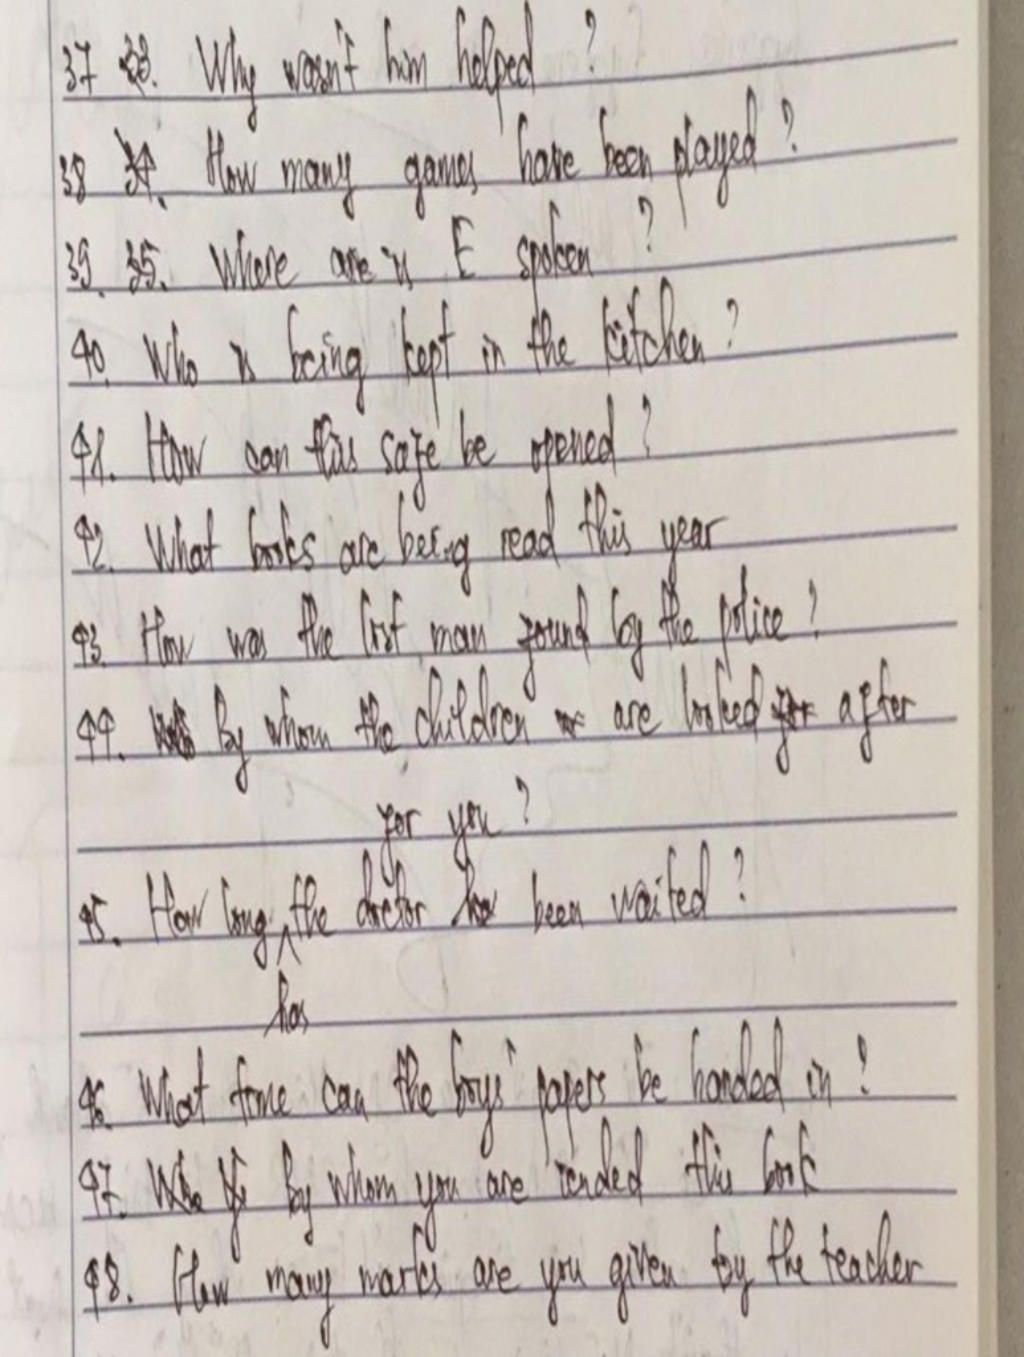 37 33. Why wasn't him helped ?
38 34. How many games have been played ?
39. 35. Where are is E spoken ?
40. Who is being kept in the kitchen ?
41. How can this safe be opened ?
42. What books are being read this year
43. How was the lost man found by the police ?
44. By whom the children are looked for after
for you ?
45. How long the doctor has been waited ?
has
46. What time can the boys' papers be handed in ?
47. Who By whom you are lended this book
48. How many marks are you given by the teacher